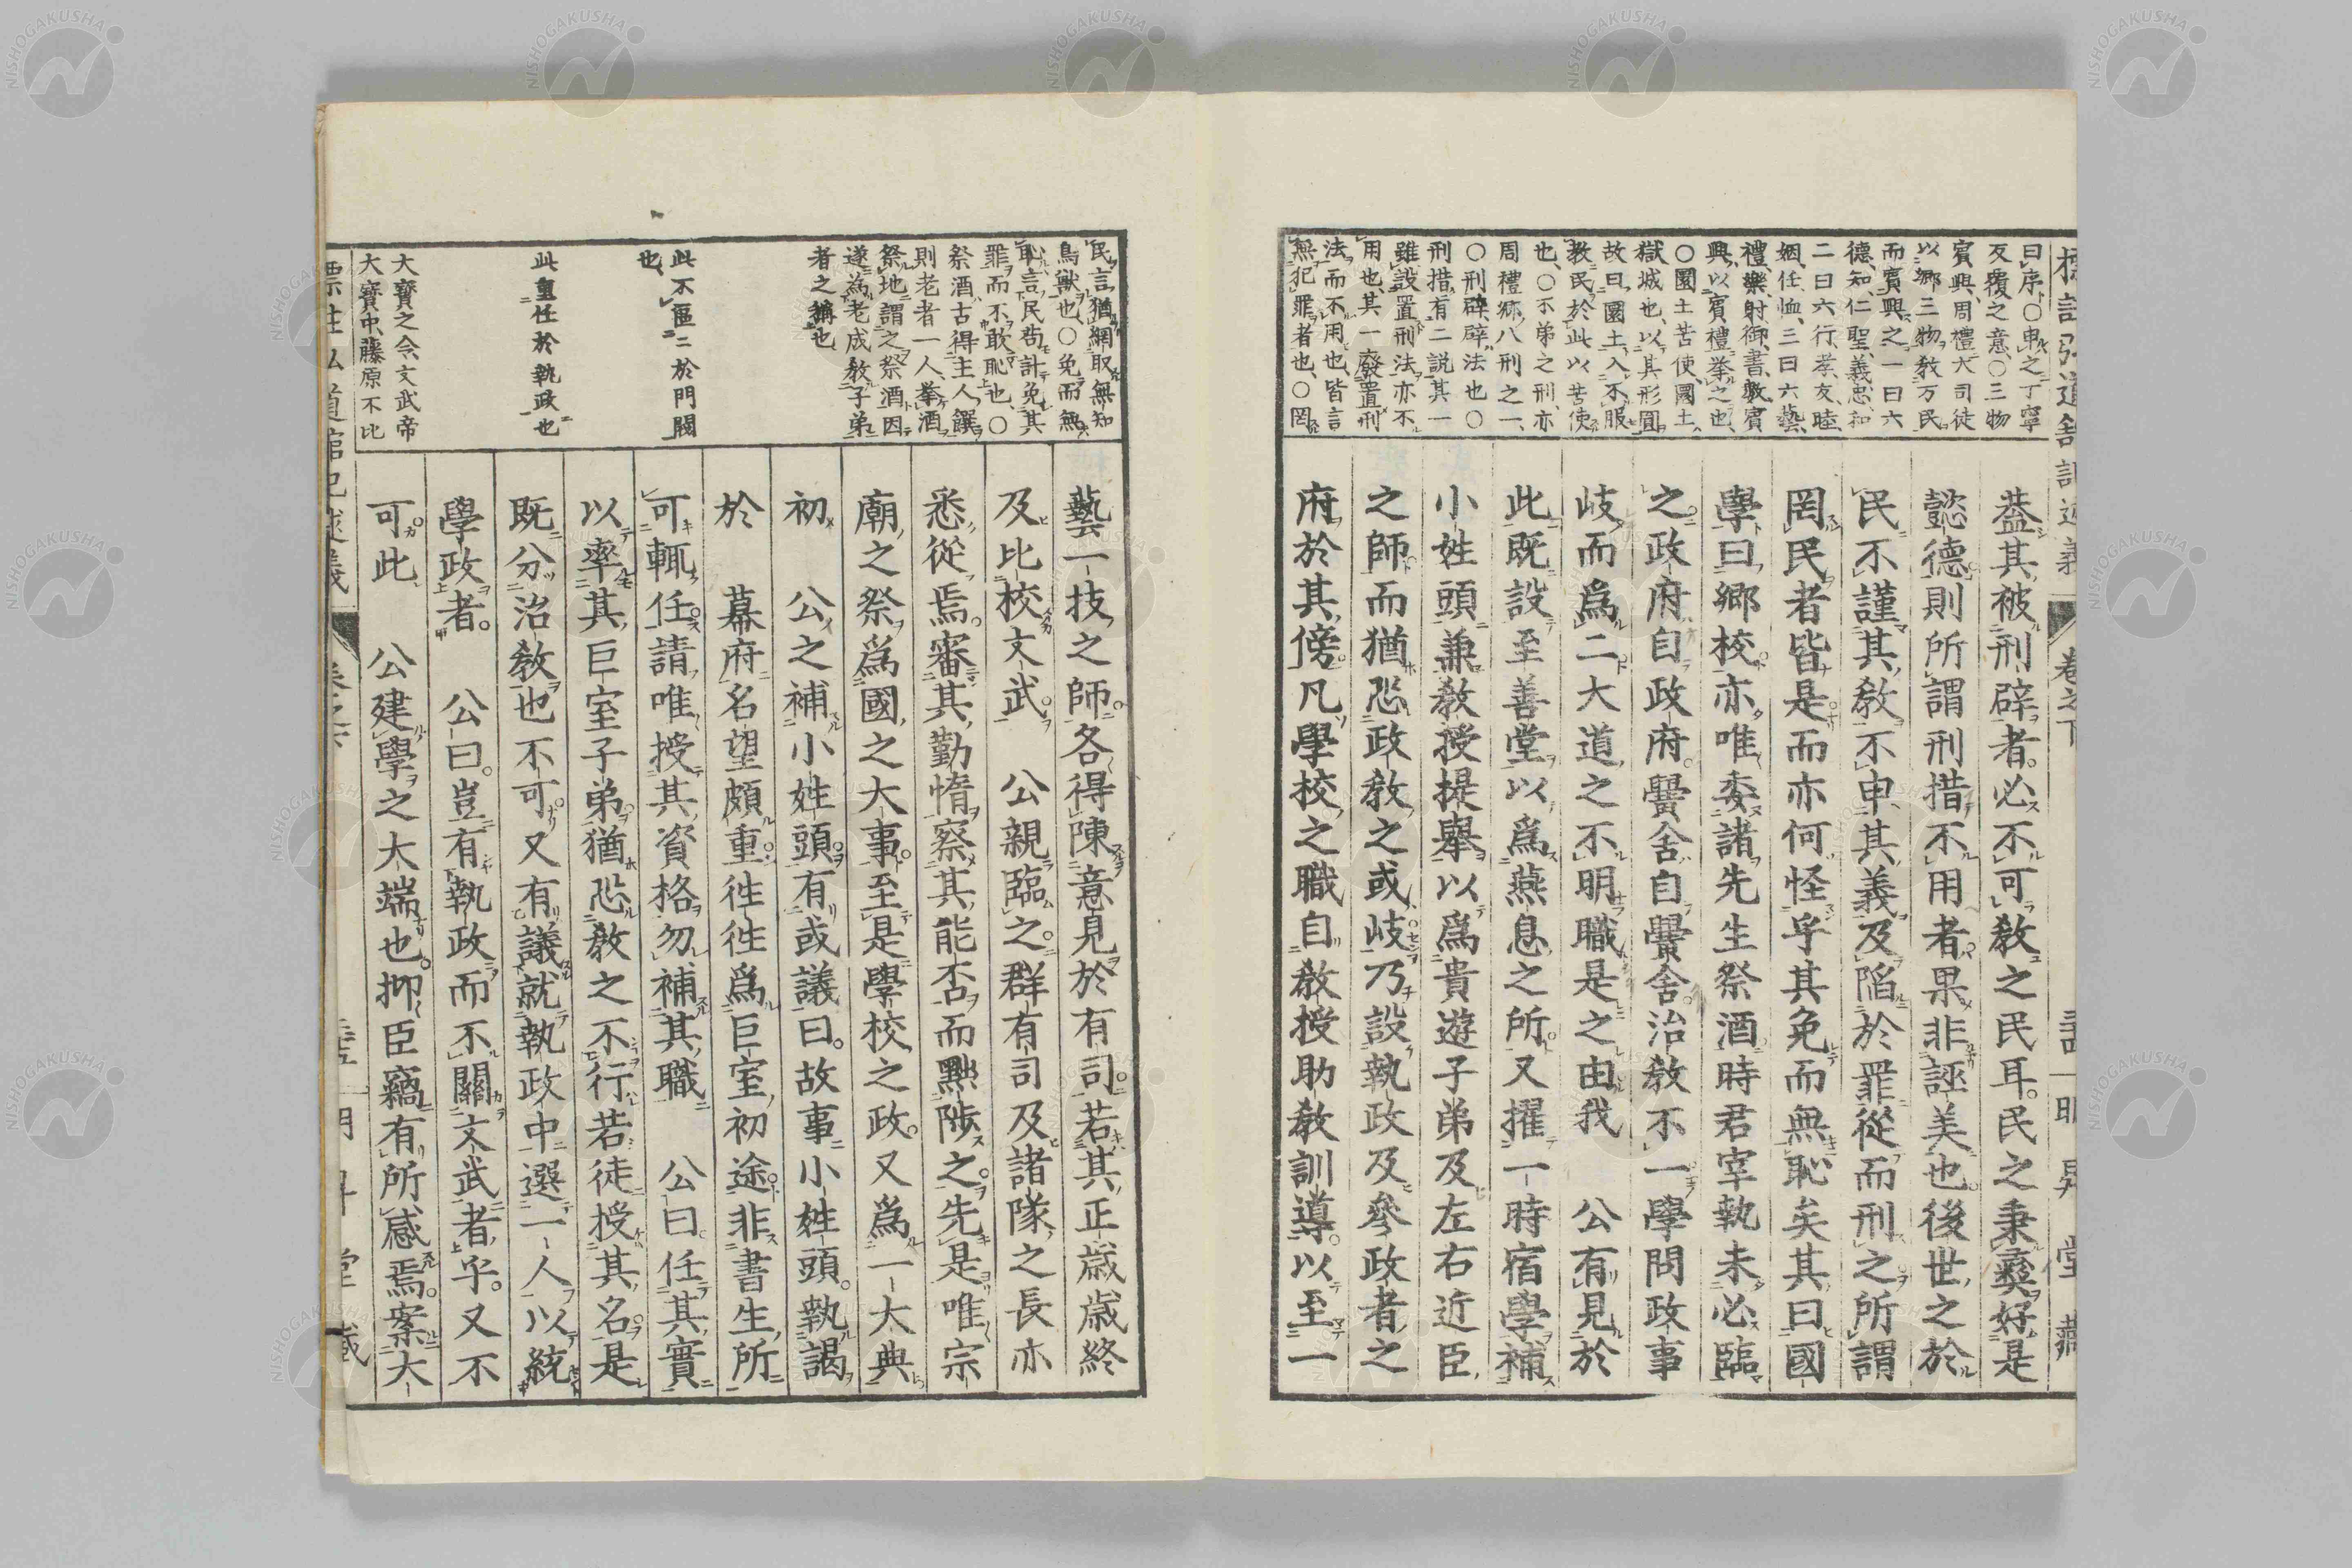 曰序、○申之丁寧
反覆之意、○三物
賓興、周禮大司徒
以鄉三物教万民
而賓興之一曰六
德、知、仁、聖、義、忠、和
二曰六行、孝、友、睦、
姻、任、恤、三曰六藝、
禮、樂、射、御、書、數、賓
興、以賓禮擧之也、
○圜土苦使圜土、
獄城也、以其形圓
故曰圜土、入不服
教民於此以苦使
也、○不弟之刑、亦
周禮鄉八刑之一、
○刑辟、辟法也○
刑措、有二説其一
雖設置刑法亦不
用也、其一廢置刑
法而不用也、皆言
無犯罪者也、○罔
蓋其被刑辟者。必不可教之民耳。民之秉彝好是
懿德則所謂刑措不用者果非誣美也。後世之於
民不謹其教不申其義及陷於罪從而刑之所謂
罔民者皆是而亦何怪乎其免而無恥矣其曰國
學曰鄉校亦唯委諸先生祭酒時君宰執未必臨
之政府自政府。黌舍自黌舍。治教不一學問政事
岐而爲二大道之不明職是之由我 公有見於
此既設至善堂以爲燕息之所又擢一時宿學補
小姓頭兼教授提擧以爲貴遊子弟及左右近臣
之師而猶恐政教之或岐乃設執政及參政者之
府於其傍凡學校之職自教授助教訓導。以至一
民言猶網取無知
鳥獸也、○免而無
恥言民苟計免其
罪而不敢恥也、○
祭酒古得主人饌
則老者一人擧酒
祭地謂之祭酒因
遂爲老成教子弟
者之稱也
此不區二於門閥
也、
此重任於執政也
大寶之令文武帝
大寶中、藤原不比
藝一技之師各得陳意見於有司。若其正歲歲終
及比校文武 公親臨之群有司及諸隊之長亦
悉從焉。審其勤惰察其能否而黜陟之。先是唯宗
廟之祭爲國之大事至是學校之政。又爲一大典
初 公之補小姓頭有或議曰。故事小姓頭。執謁
於 幕府名望頗重徃徃爲巨室初途非書生所
可輒任請唯授其資格勿補其職 公曰任其實
以率其巨室子弟猶恐教之不行若徒授其名是
既分治教也不可又有議就執政中選一人以統
學政者。 公曰。豈有執政而不關文武者乎。又不
可此 公建學之大端也。抑臣竊有所感焉。案大